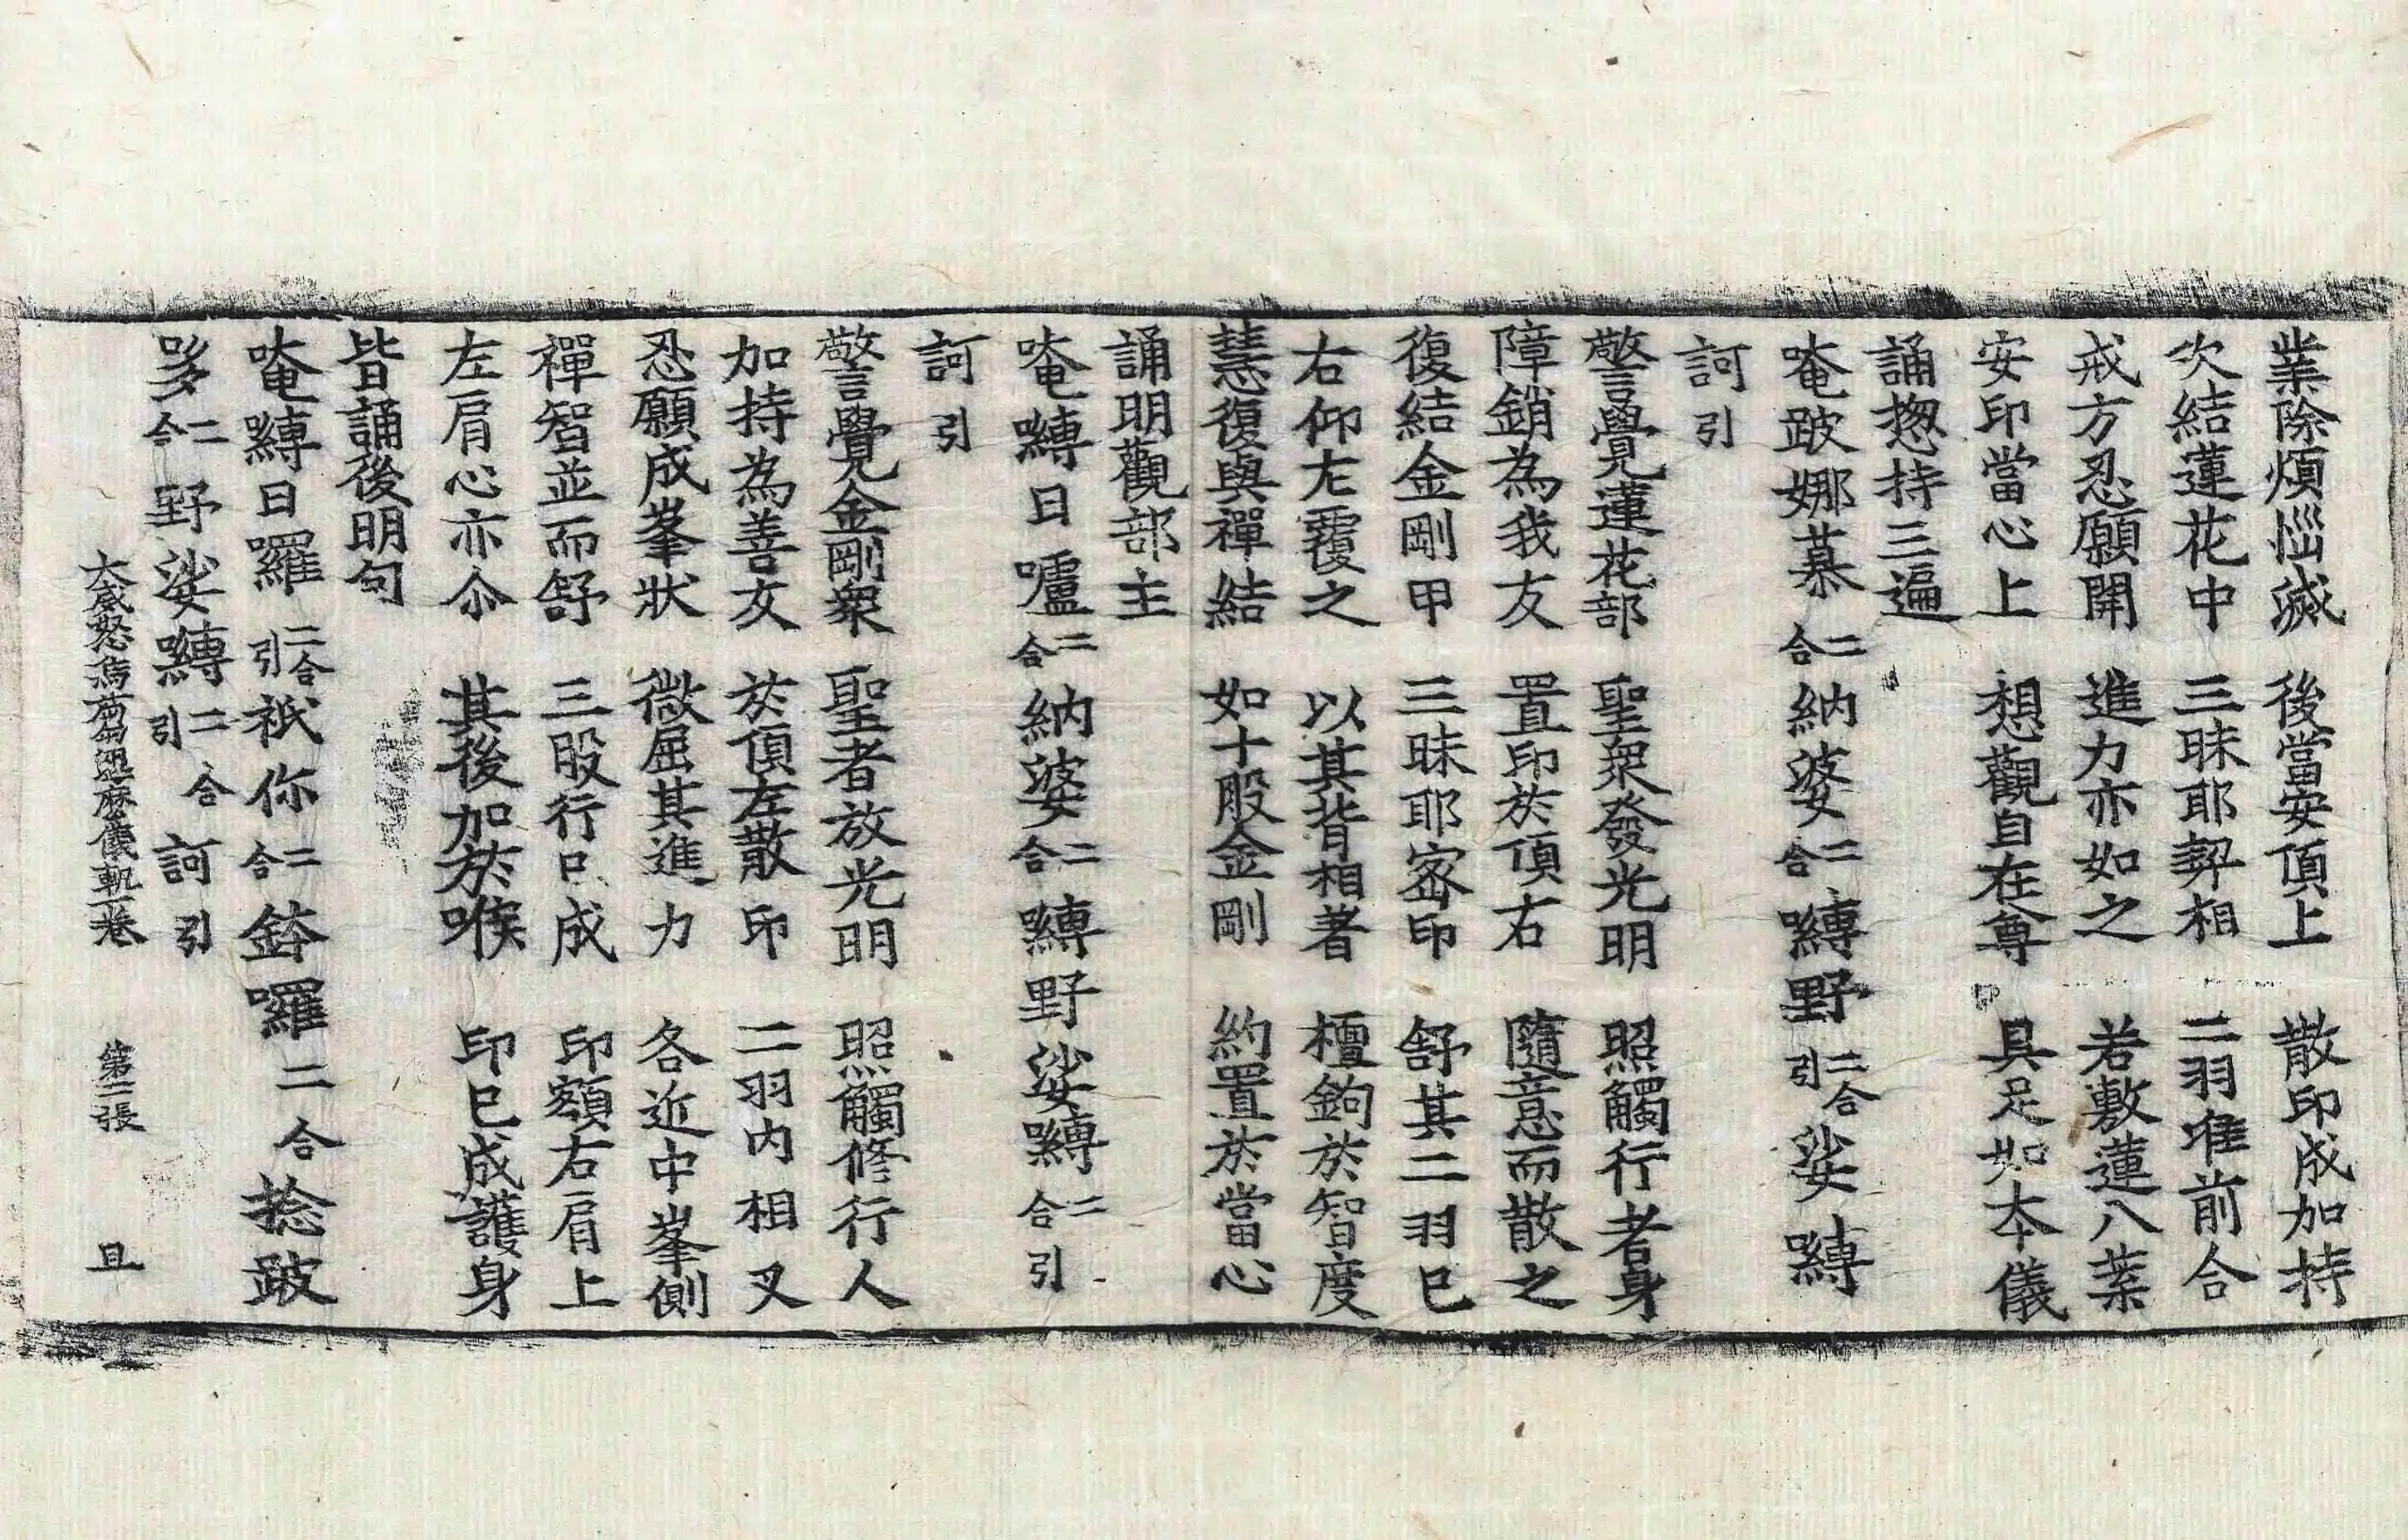 業除煩惱滅 後當安頂上 散印成加持
次結蓮花中 三昧耶契相 二羽准前合
戒方忍願開 進力亦如之 若敷蓮八葉
安印當心上 想觀自在尊 具足如本儀
誦揔持三遍
唵跛娜慕二合納婆二合嚩野二合引娑嚩
訶引
警覺蓮花部 聖衆發光明 照觸行者身
障銷為我友 置印於頂右 隨意而散之
復結金剛甲 三昧耶密印 舒其二羽已
右仰左覆之 以其背相著 檀鉤於智度
慧復與禪結 如十股金剛 約置於當心
誦明觀部主
唵嚩日嚧二合納婆二合嚩野娑嚩二合引
訶引
警覺金剛衆 聖者放光明 照觸修行人
加持為善友 於頂左散印 二羽內相叉
忍願成峯狀 微屈其進力 各近中峯側
禪智並而舒 三股行口成 印額右肩上
左肩心亦尒 其後加於喉 印已成護身
皆誦後明句
唵嚩日囉二合引祇你二合鉢囉二合捻跛
跢二合野娑嚩二合引合訶引
大威怒烏芻澁麼儀軌一卷 第二張 且